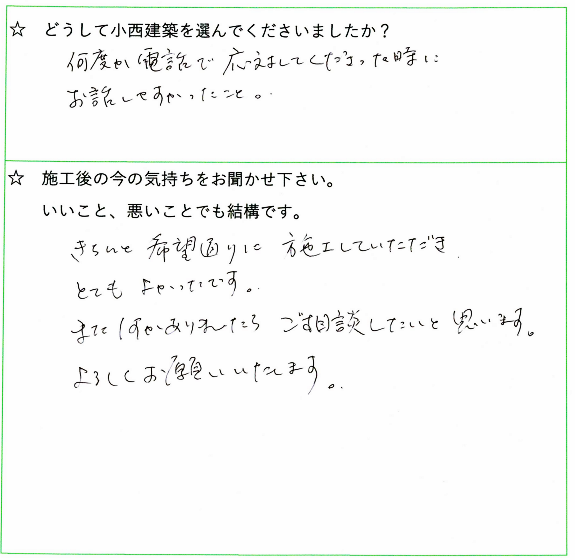 ☆ どうして小西建築を選んでくださいましたか？
何度か電話で応対してくださった時に
お話しやすかったこと。
☆ 施工後の今の気持ちをお聞かせ下さい。
いいこと、悪いことでも結構です。
きちんと希望通りに施工していただき
とてもよかったです。
また何かありましたら ご相談したいと思います。
よろしくお願いいたします。